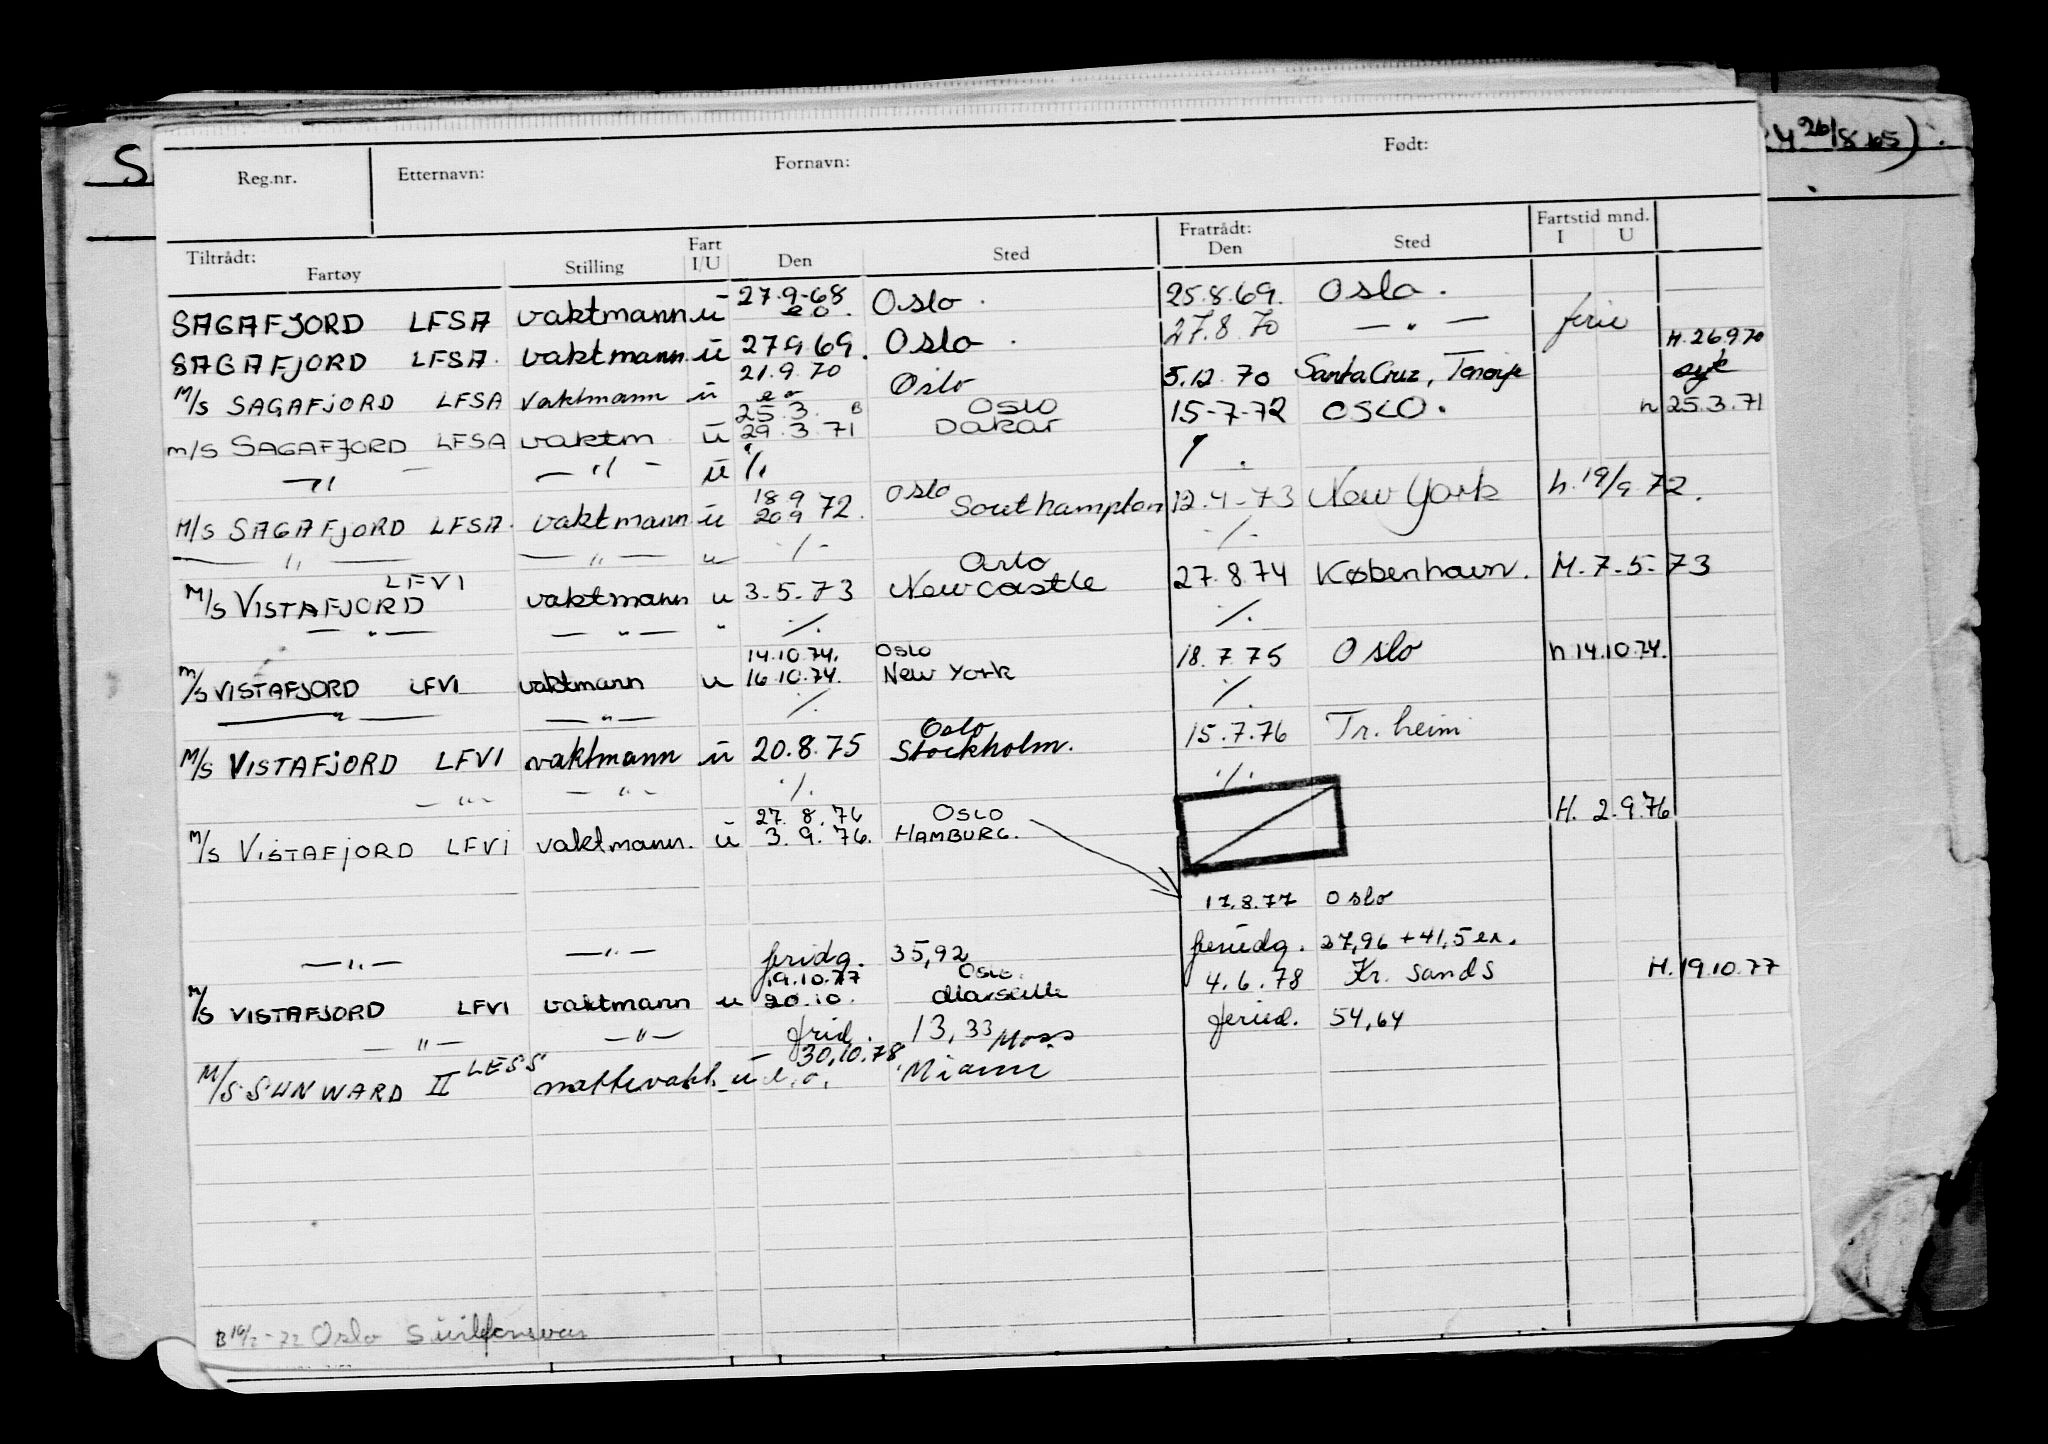 S 26/8 65).
Reg.nr. Etternavn: Fornavn: Født:
Tiltrådt: Fart Fratrådt: Fartstid mnd.
Fartøy Stilling I/U Den Sted Den Sted I U
SAGAFJORD LFSA vaktmann u 27.9-68 eo. Oslo. 25.8.69. Oslo.
SAGAFJORD LFSA. vaktmann u 27.9.69. Oslo. 27.8.70 — " — ferie H.26.9.70
M/S SAGAFJORD LFSA vaktmann u 21.9.70 eo Oslo 5.12.70 Santa Cruz, syk
m/s SAGAFJORD LFSA vaktm u 25.3. 29.3.71 B Oslo Dakar 15-7-72 OSLO. h 25.3.71
— " — — " — u ./. ./.
M/S SAGAFJORD LFSA. vaktmann u 18 9 20 9 72. Oslo Southampton 12.4-73 New York h.19/9 72.
— " — — " — u ./. ./.
M/S VISTAFJORD LFVI vaktmann u 3-5-73 Oslo Newcastle 27.8.74 København. M.7-5-73
— " — — " — " ./. ./.
M/S VISTAFJORD LFVI vaktmann u 14.10.74. 16.10.74. Oslo New York 18.7.75 Oslo h 14.10.74.
— " — — " — ./. ./.
M/S VISTAFJORD LFVI vaktmann u 20.8.75 Oslo Stockholm. 15.7.76 Tr.heim
— " — — " — ./. ./.
M/S VISTAFJORD LFVI vaktmann. u 27.8.76 3.9.76. Oslo HAMBURG. H. 2.9.76
17.8.77 Oslo
— " — — " — fridg. 35,92 feriedg. 27,96 + 41,5 er.
M/S VISTAFJORD LFVI vaktmann u 19.10.77 20.10. Oslo. Marseille 4.6.78 Kr. sands H.19.10.77
— " — — " — frid. 13,33 feried. 54,64
M/S SUNWARD II LESS nattevakt u 30.10.78 e.o. Moss Miami
B 16/2-72 Oslo Sivilforsvar